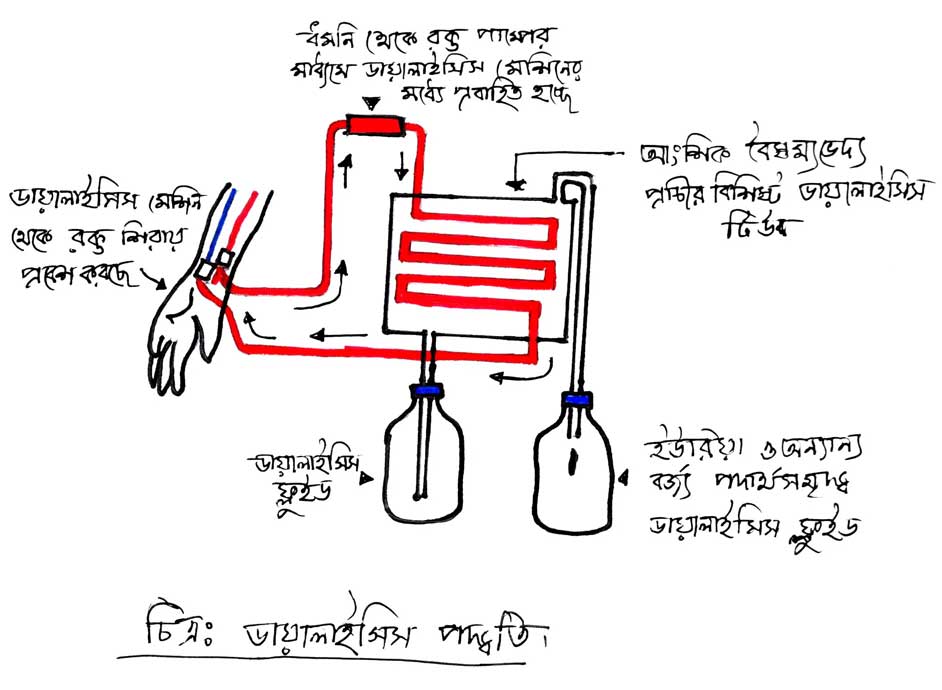 ধমনি থেকে রক্ত পাম্পের
মাধ্যমে ডায়ালাইসিস মেশিনের
মধ্যে প্রবাহিত হচ্ছে
আংশিক বৈষম্যভেদ্য
প্রাচীর বিশিষ্ট ডায়ালাইসিস
টিউব
ডায়ালাইসিস মেশিন
থেকে রক্ত শিরায়
প্রবেশ করছে
ডায়ালাইসিস
ফ্লুইড
ইউরিয়া ও অন্যান্য
বর্জ্য পদার্থসমৃদ্ধ
ডায়ালাইসিস ফ্লুইড
চিত্র: ডায়ালাইসিস পদ্ধতি।